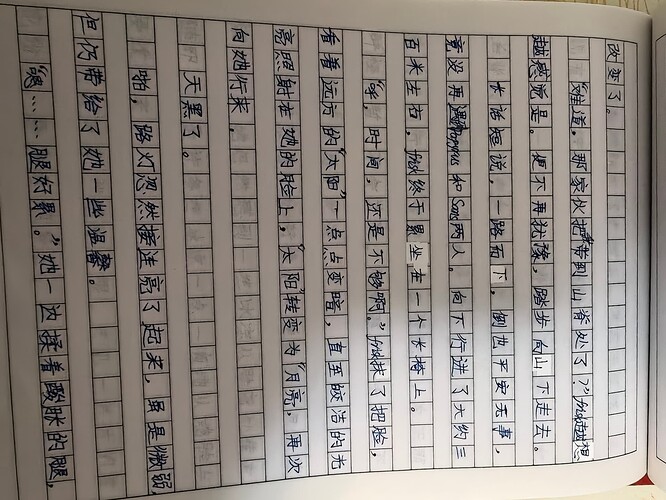 改变了。
"难道，那家伙把我带到山脊处了？"frisk越想
越感觉是。便不再犹豫，踏步向山下走去。
长话短说，一路而下，倒也平安无事，
竟没再遇Papyrus和Sans两人。向下行进了大约三
百米左右，frisk终于累坐在一个长椅上。
"呼，时间，还是不够啊。"frisk抹了把脸，
看着远方的"太阳"一点点变暗，直至皎洁的光
亮照射在她的脸上，"太阳"转变为"月亮，再次
向她行来，
天黑了。
啪，路灯忽然接连亮了起来，虽是微弱，
但仍带给了她一些温馨。
"嗯……腿好累。"她一边揉着酸胀的腿，